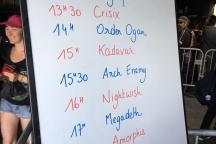 13H30 Crisix
14H Orden Ogan
15H Kadavar
15H30 Arch Enemy
16H Nightwish
17H Megadeth
Amorphis